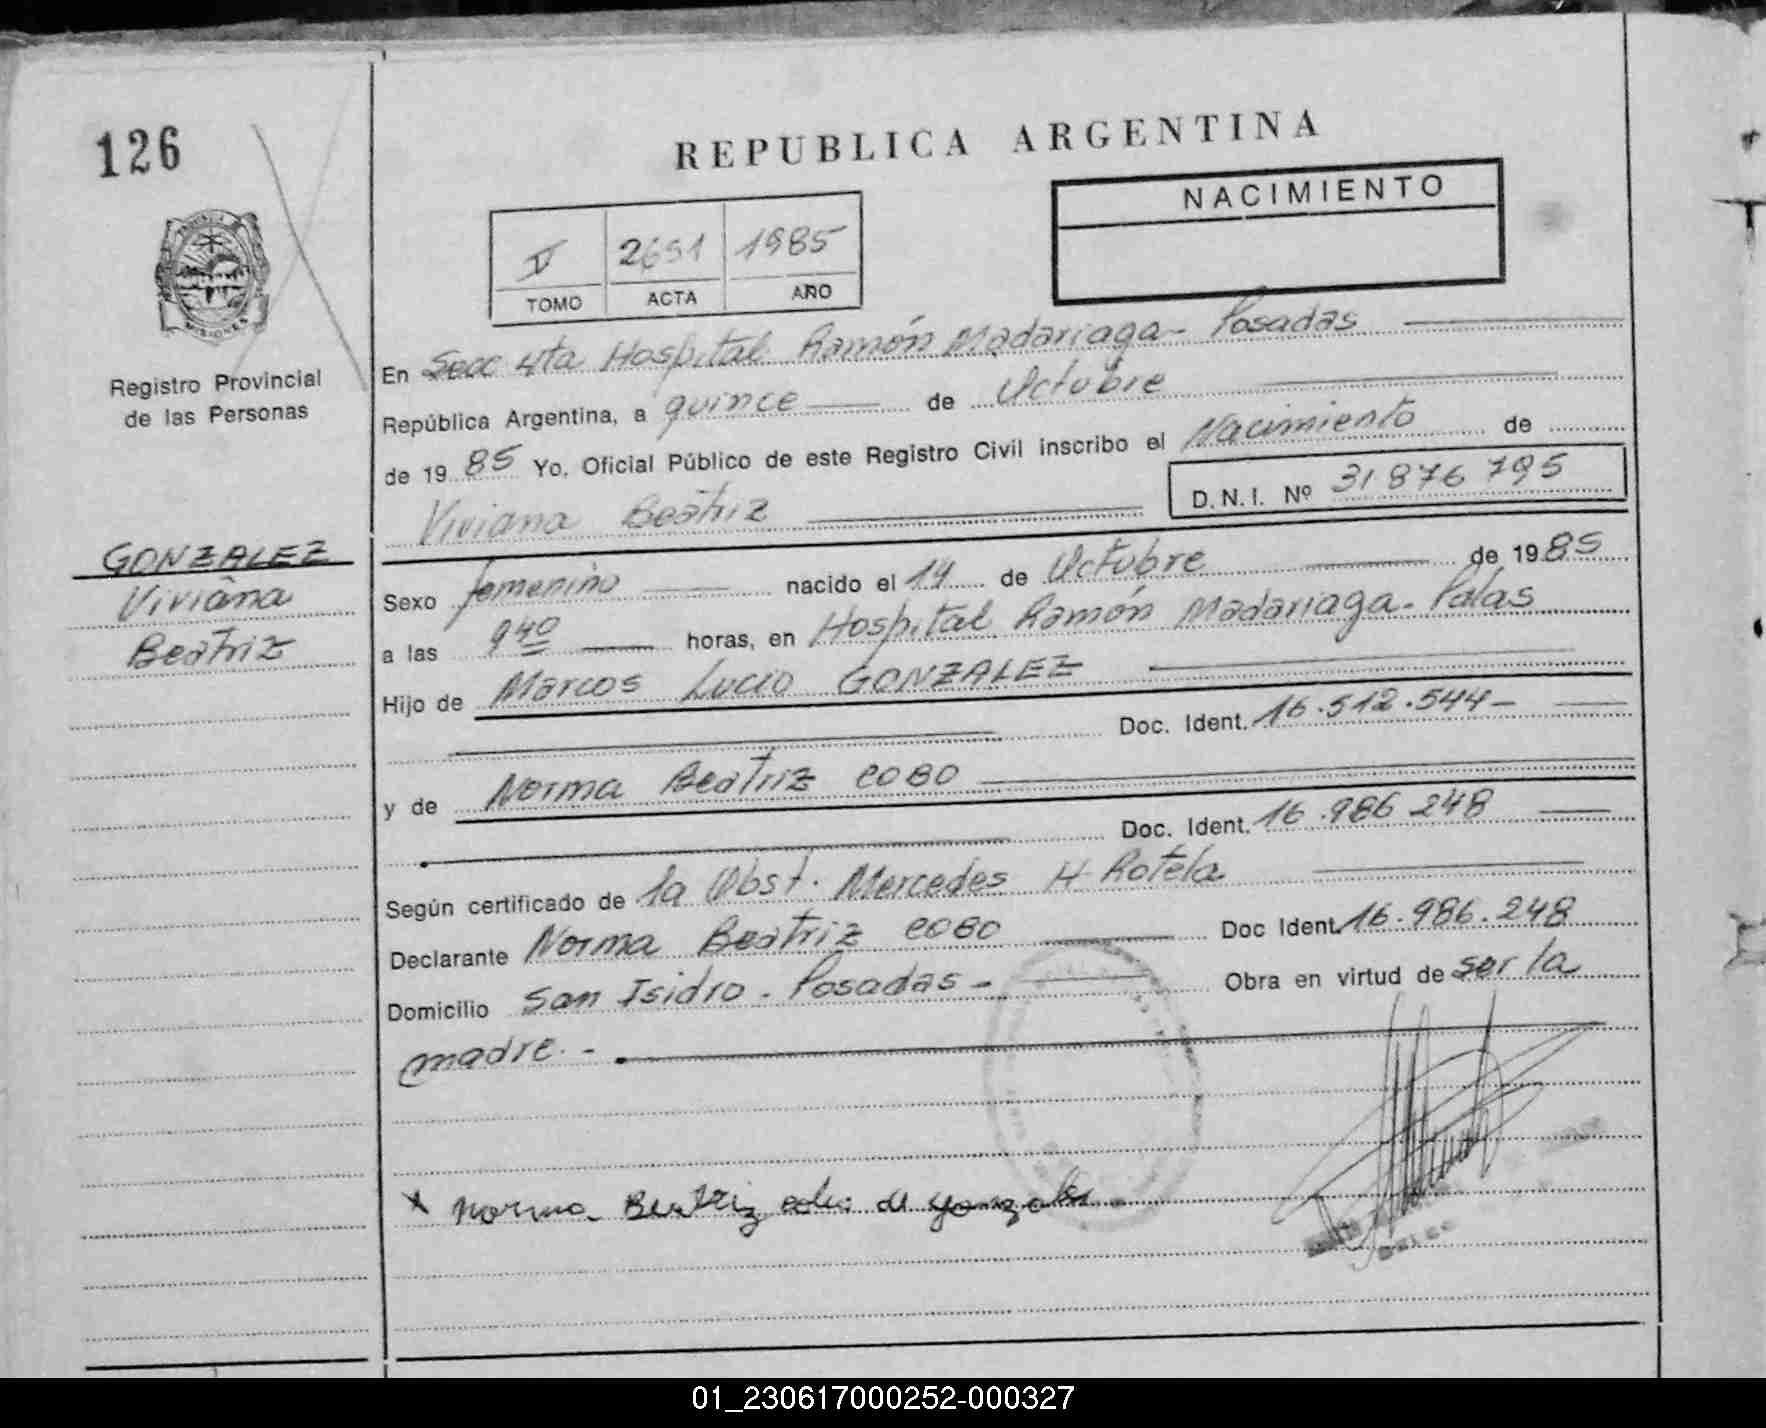 126
REPUBLICA ARGENTINA
NACIMIENTO
V 2691 1985
TOMO ACTA AÑO
MISIONES
Registro Provincial
de las Personas
En Secc 4ta Hospital Ramón Madariaga - Posadas
República Argentina, a quince de Octubre
de 19 85 Yo, Oficial Público de este Registro Civil inscribo el Nacimiento de
D.N.I. Nº 31 876 795
Viviana Beatriz
GONZALEZ
Viviana
Beatriz
Sexo femenino nacido el 14 de Octubre de 1985
a las 9 40 horas, en Hospital Ramón Madariaga - Pdas
Hijo de Marcos Lucio GONZALEZ
Doc. Ident. 16.512.544 -
y de Norma Beatriz COBO
Doc. Ident. 16.986 248
Según certificado de la Obst. Mercedes H Rotela
Declarante Norma Beatriz COBO Doc Ident. 16.986.248
Domicilio San Isidro - Posadas - Obra en virtud de ser la
madre. -
x Norma Beatriz cobo de gonzalez
01_230617000252-000327